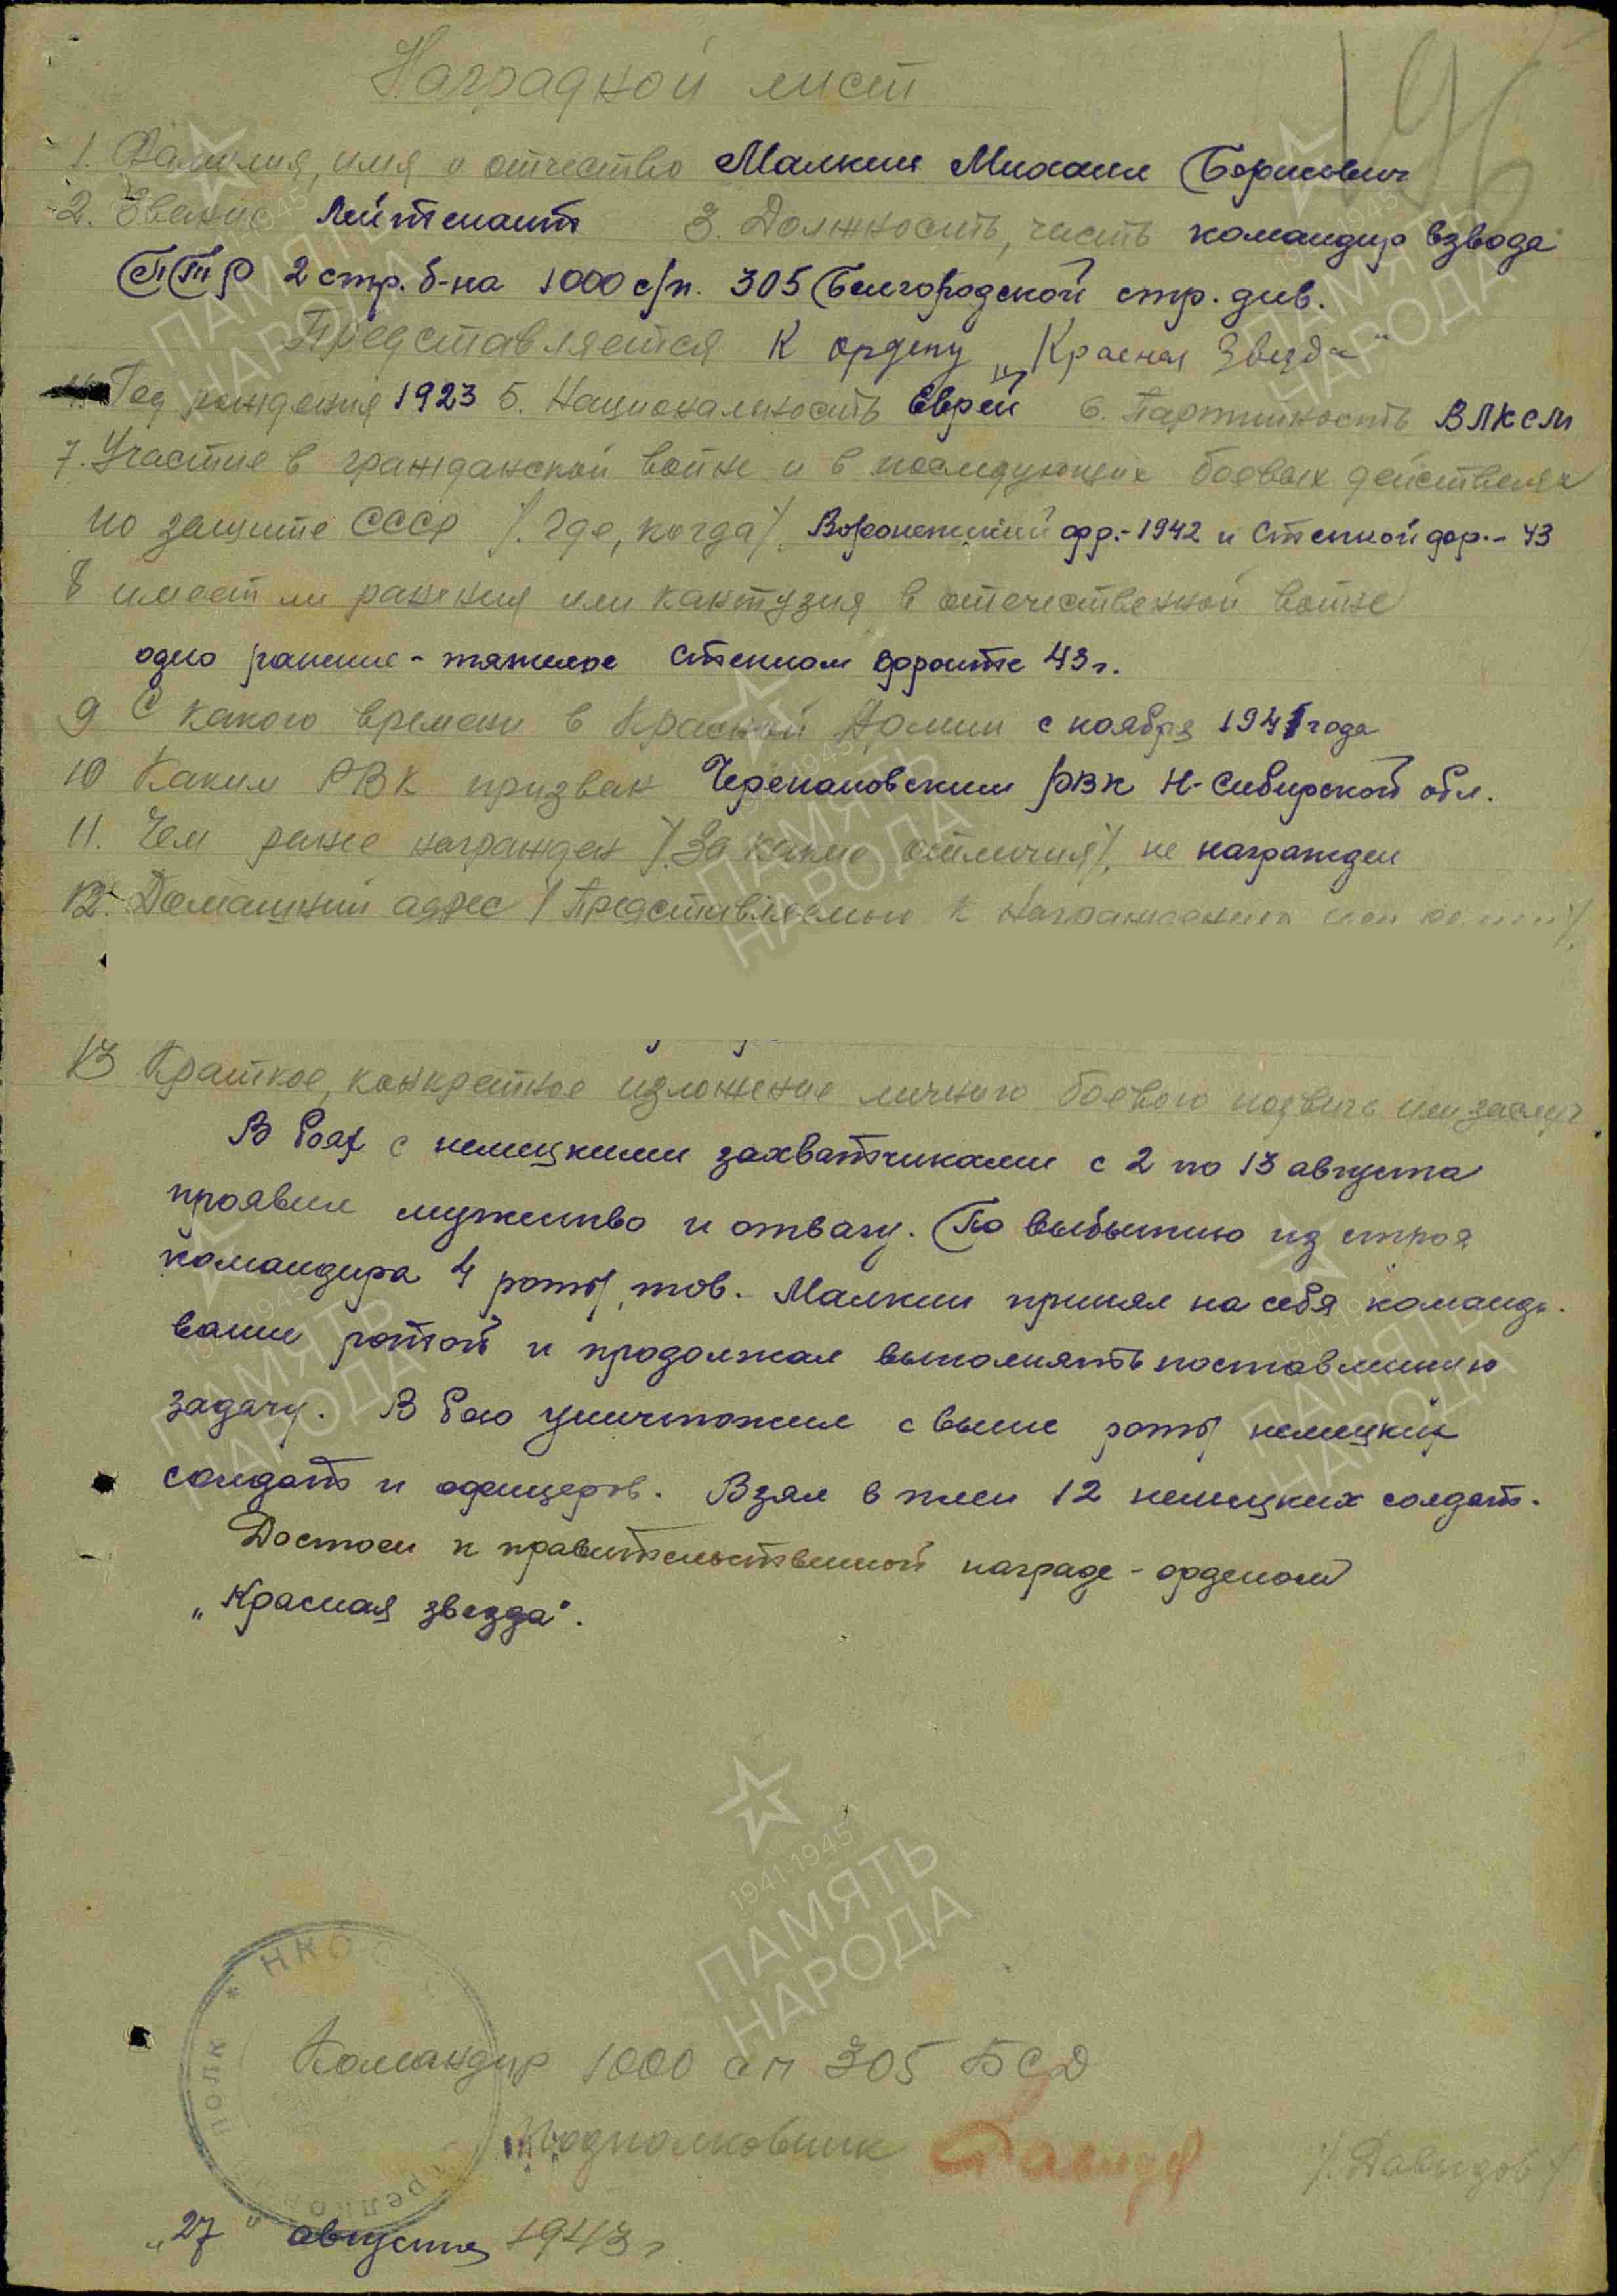 196
Наградной лист
1. Фамилия, имя и отчество Малкин Михаил Борисович
2. Звание Лейтенант 3. Должность, часть командир взвода
ПТР 2 стр. б-на 1000 с/п. 305 Белгородской стр. див.
Представляется к ордену „Красная Звезда"
4. Год рождения 1923 5. Национальность Еврей 6. Партийность ВЛКСМ
7. Участие в гражданской войне и в последующих боевых действиях
по защите СССР /. где, когда/. Воронежский фр.- 1942 и Степной фр.- 43
8 имеет ли ранения или кантузия в отечественной войне
одно ранение - тяжелое Степном фронте 43 г.
9 С какого времени в Красной Армии с ноября 1941 года
10 Каким РВК призван Черепановским РВК Н-Сибирской обл.
11. Чем ранее награжден /. За какие отличия/. не награжден
12. Домашний адрес / Представляемого к награждению
13 Краткое, конкретное изложение личного боевого подвига или заслуг
В боях с немецкими захватчиками с 2 по 13 августа
проявил мужество и отвагу. По выбытию из строя
командира 4 роты, тов. Малкин принял на себя командо-
вание ротой и продолжал выполнять поставленную
задачу. В бою уничтожил свыше роты немецких
солдат и офицеров. Взял в плен 12 немецких солдат.
Достоин к правительственной награде - орденом
„Красная звезда".
Командир 1000 сп 305 БСД
Подполковник Давидов /. Давыдов /
„27 августа 1943 г.
НКО
ПОЛК
1941 1945
ПАМЯТЬ
НАРОДА